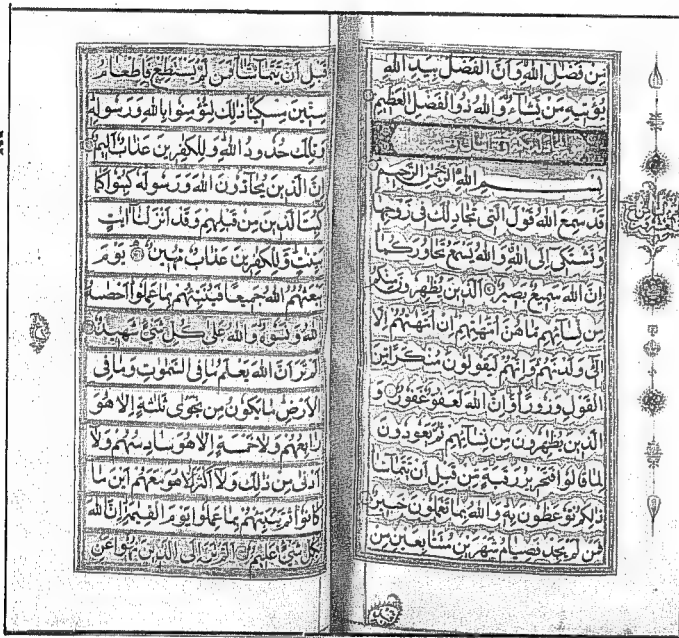 مِن فَضْلِ اللهِ وَاَنَّ الْفَضْلَ بِيَدِ اللهِ
يُؤْتِيهِ مَنْ يَشَاءُ وَاللهُ ذُو الْفَضْلِ الْعَظِيمِ
بِسْمِ اللهِ الرَّحْمٰنِ الرَّحِيمِ
قَدْ سَمِعَ اللهُ قَوْلَ الَّتِي تُجَادِلُكَ فِي زَوْجِهَا
وَتَشْتَكِي اِلَى اللهِ وَاللهُ يَسْمَعُ تَحَاوُرَكُمَا
اِنَّ اللهَ سَمِيعٌ بَصِيرٌ الَّذِينَ يُظٰهِرُونَ مِنْكُمْ
مِنْ نِسَائِهِمْ مَا هُنَّ اُمَّهٰتِهِمْ اِنْ اُمَّهٰتُهُمْ اِلَّا
الّٰئِي وَلَدْنَهُمْ وَاِنَّهُمْ لَيَقُولُونَ مُنْكَرًا مِنَ
الْقَوْلِ وَزُورًا وَاِنَّ اللهَ لَعَفُوٌّ غَفُورٌ وَ
الَّذِينَ يُظٰهِرُونَ مِنْ نِسَائِهِمْ ثُمَّ يَعُودُونَ
لِمَا قَالُوا فَتَحْرِيرُ رَقَبَةٍ مِنْ قَبْلِ اَنْ يَتَمَاسَّا
ذٰلِكُمْ تُوعَظُونَ بِهِ وَاللهُ بِمَا تَعْمَلُونَ خَبِيرٌ
فَمَنْ لَمْ يَجِدْ فَصِيَامُ شَهْرَيْنِ مُتَتَابِعَيْنِ مِنْ
قَبْلِ اَنْ يَتَمَاسَّا فَمَنْ لَمْ يَسْتَطِعْ فَاِطْعَامُ
سِتِّينَ مِسْكِينًا ذٰلِكَ لِتُؤْمِنُوا بِاللهِ وَرَسُولِهِ
وَتِلْكَ حُدُودُ اللهِ وَلِلْكٰفِرِينَ عَذَابٌ اَلِيمٌ
اِنَّ الَّذِينَ يُحَادُّونَ اللهَ وَرَسُولَهُ كُبِتُوا كَمَا
كُبِتَ الَّذِينَ مِنْ قَبْلِهِمْ وَقَدْ اَنْزَلْنَا اٰيٰتٍ
بَيِّنٰتٍ وَلِلْكٰفِرِينَ عَذَابٌ مُهِينٌ يَوْمَ
يَبْعَثُهُمُ اللهُ جَمِيعًا فَيُنَبِّئُهُمْ بِمَا عَمِلُوا اَحْصٰهُ
اللهُ وَنَسُوهُ وَاللهُ عَلٰى كُلِّ شَيْءٍ شَهِيدٌ
اَلَمْ تَرَ اَنَّ اللهَ يَعْلَمُ مَا فِي السَّمٰوٰتِ وَمَا فِي
الْاَرْضِ مَا يَكُونُ مِنْ نَجْوٰى ثَلٰثَةٍ اِلَّا هُوَ
رَابِعُهُمْ وَلَا خَمْسَةٍ اِلَّا هُوَ سَادِسُهُمْ وَلَا
اَدْنٰى مِنْ ذٰلِكَ وَلَا اَكْثَرَ اِلَّا هُوَ مَعَهُمْ اَيْنَ مَا
كَانُوا ثُمَّ يُنَبِّئُهُمْ بِمَا عَمِلُوا يَوْمَ الْقِيٰمَةِ اِنَّ اللهَ
بِكُلِّ شَيْءٍ عَلِيمٌ اَلَمْ تَرَ اِلَى الَّذِينَ نُهُوا عَنِ